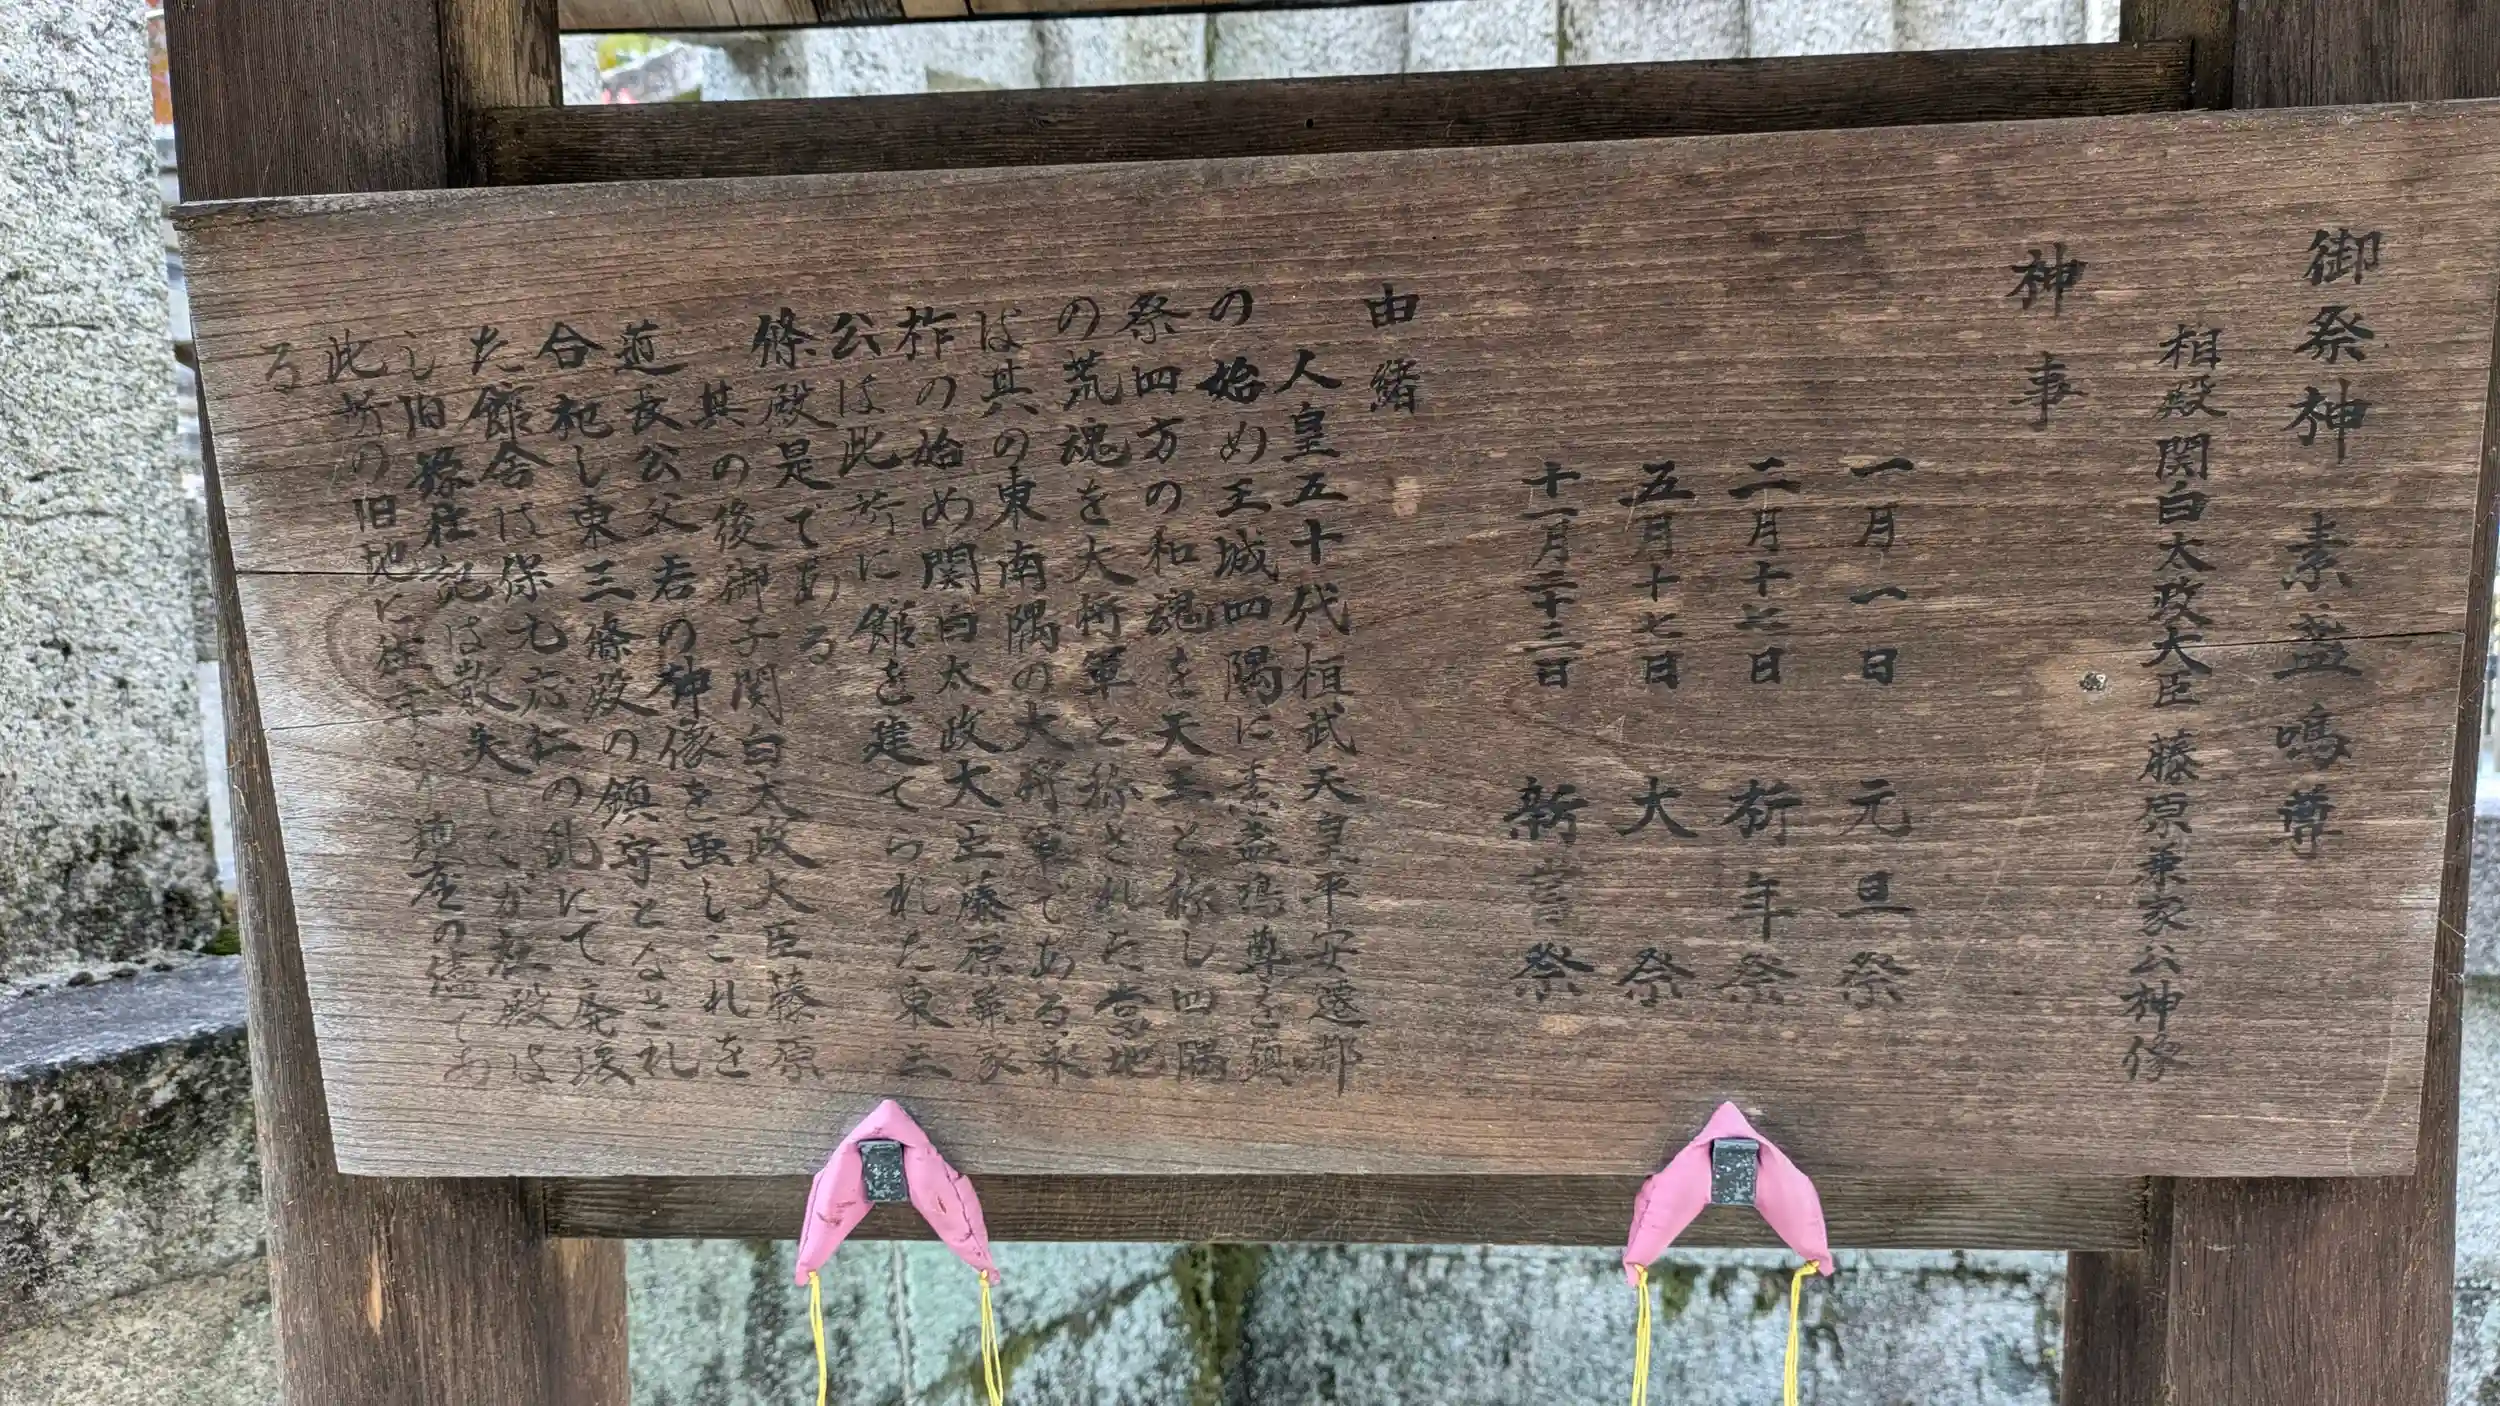 御祭神 素盞嗚尊
相殿 関白太政大臣 藤原兼家公神像
神事
一月一日 元旦祭
二月十七日 祈年祭
五月十七日 大祭
十一月二十三日 新嘗祭
由緒
人皇五十代桓武天皇平安遷都
の始め王城四隅に素盞嗚尊を鎮
祭四方の和魂を天王と称し四隅
の荒魂を大将軍と称された当地
は其の東南隅の大将軍である永
祚の始め関白太政大臣藤原兼家
公は此所に館を建てられた東三
條殿是である
其の後御子関白太政大臣藤原
道長公父君の神像を画しこれを
合祀し東三條殿の鎮守となされ
た館舎は保元応仁の乱にて廃璟
し旧 社記は散失したが社殿は
此所の旧地に 鎮座の儘であ
る